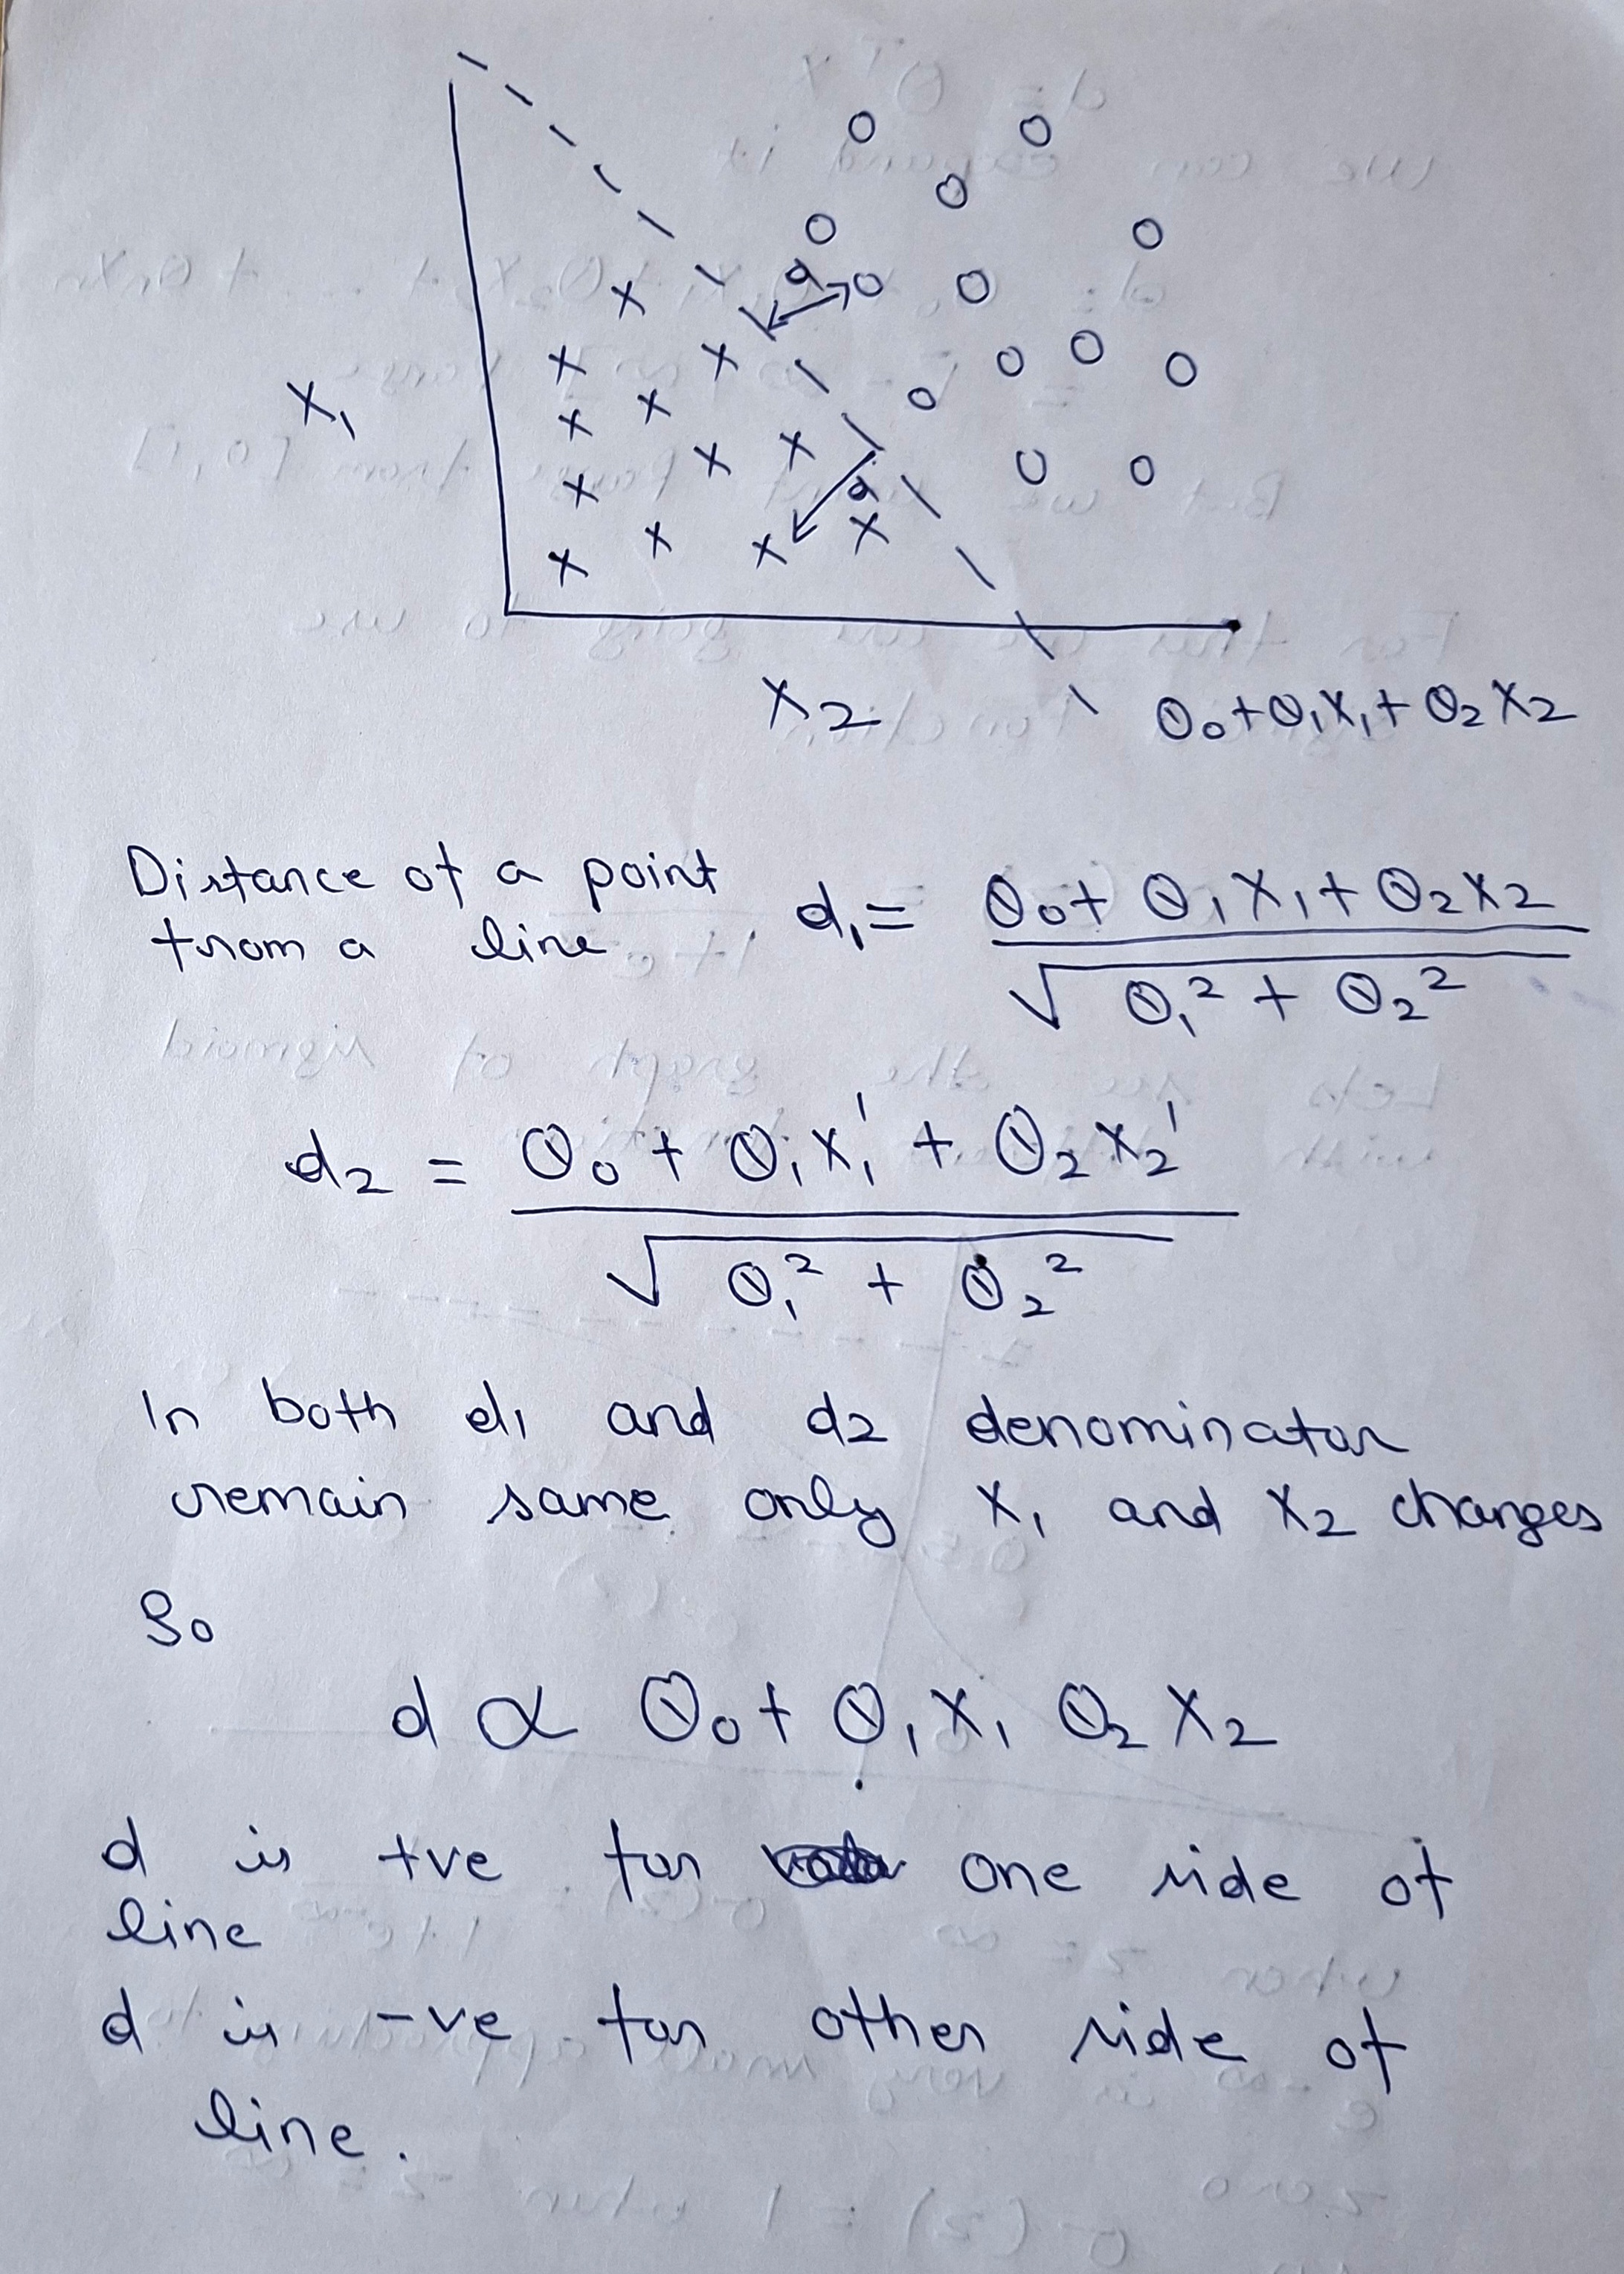 d
X₁
d
X₂
θ₀+θ₁X₁+θ₂X₂
Distance of a point
from a line
d₁= θ₀+ θ₁X₁+ θ₂X₂
√ θ₁² + θ₂²
d₂ = θ₀ + θ₁X₁' + θ₂X₂'
√ θ₁² + θ₂²
In both d₁ and d₂ denominator
remain same only X₁ and X₂ changes
So
d ∝ θ₀+ θ₁X₁ θ₂X₂
d is +ve for one side of
line
d is -ve for other side of
line.